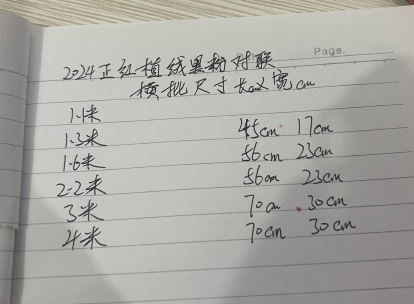 Page.
2024正红植绒黑粉对联
横批尺寸长cmx宽cm
1.1米
1.3米 45cm 17cm
1.6米 56cm 23cm
2.2米 56cm 23cm
3米 70cm 30cm
4米 70cm 30cm